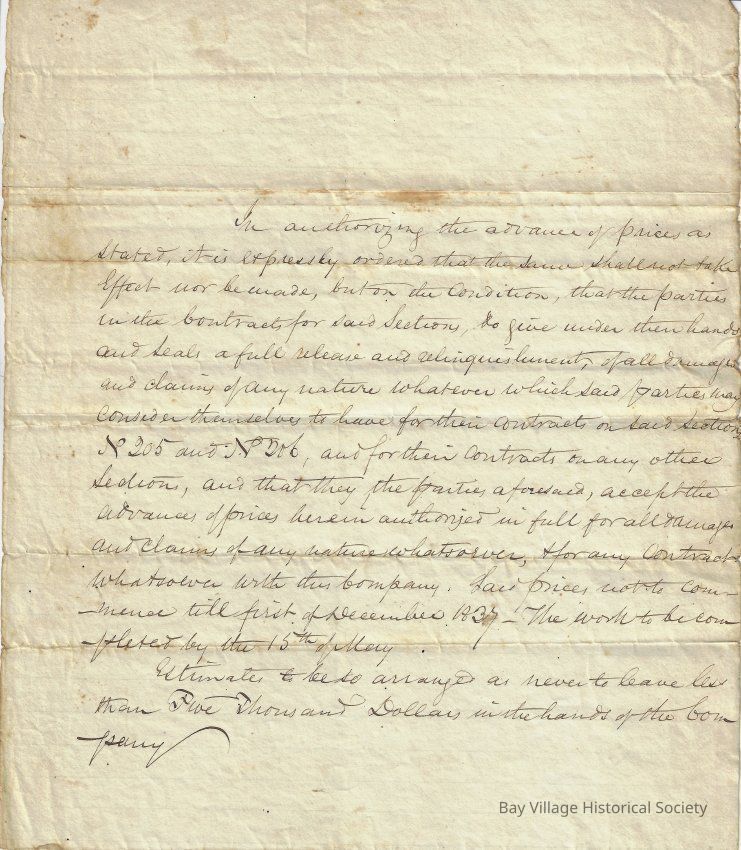 In authorizing the advance of prices as
stated, it is expressly ordered that the same shall not take
Effect nor be made, but on the Condition, that the parties
in the Contracts for said Sections, to give under their hands
and seals a full release and relinquishment, of all damages
and claims of any nature whatever which said parties may
consider themselves to have for their contracts on said Sections
No 205 and No 206, and for their Contracts on any other
Sections, and that they the parties aforesaid, accept the
advances of prices herein authorized in full for all damages
and claims of any nature whatsoever, & for any Contracts
whatsoever with this Company. Said prices not to com-
-mence till first of December 1837 - The work to be com
-pleted by the 15th of May
Estimates to be so arranged as never to leave less
than Five Thousand Dollars in the hands of the Com-
-pany
Bay Village Historical Society